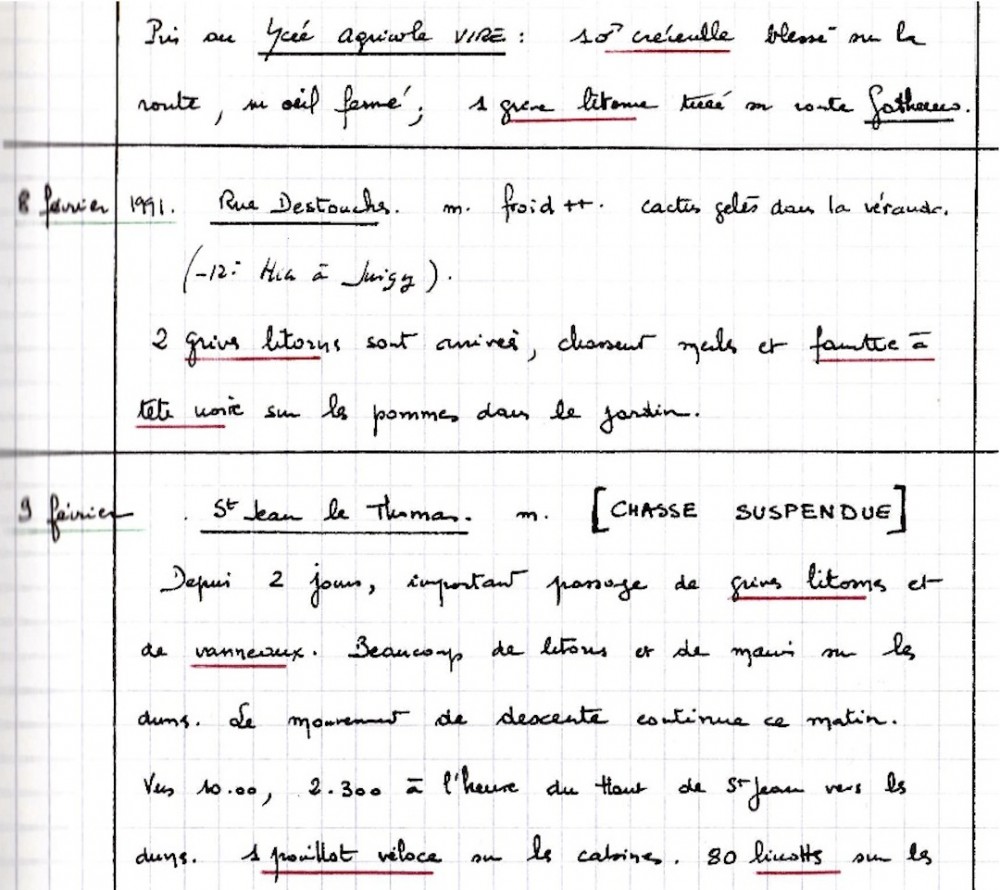 Pris au Lycée agricole VIRE : 1 ♂ crécerelle blessé sur la
route, un oeil fermé ; 1 grive litorne tuée sur route Gathemo.
8 février 1991. Rue Destouches. m. froid ++. cactus gelés dans la véranda.
(-12° Hia à Juvigy).
2 grives litornes sont arrivées, chassent merles et fauvette à
tête noire sur les pommes dans le jardin.
9 février . St Jean le Thomas. m. [CHASSE SUSPENDUE]
Depuis 2 jours, important passage de grives litornes et
de vanneaux. Beaucoup de litornes et de mauvis sur les
dunes. Le mouvement de descente continue ce matin.
Vers 10.00, 2.300 à l'heure du Haut de St Jean vers les
dunes. 1 pouillot véloce sur les cabines. 80 linottes sur les